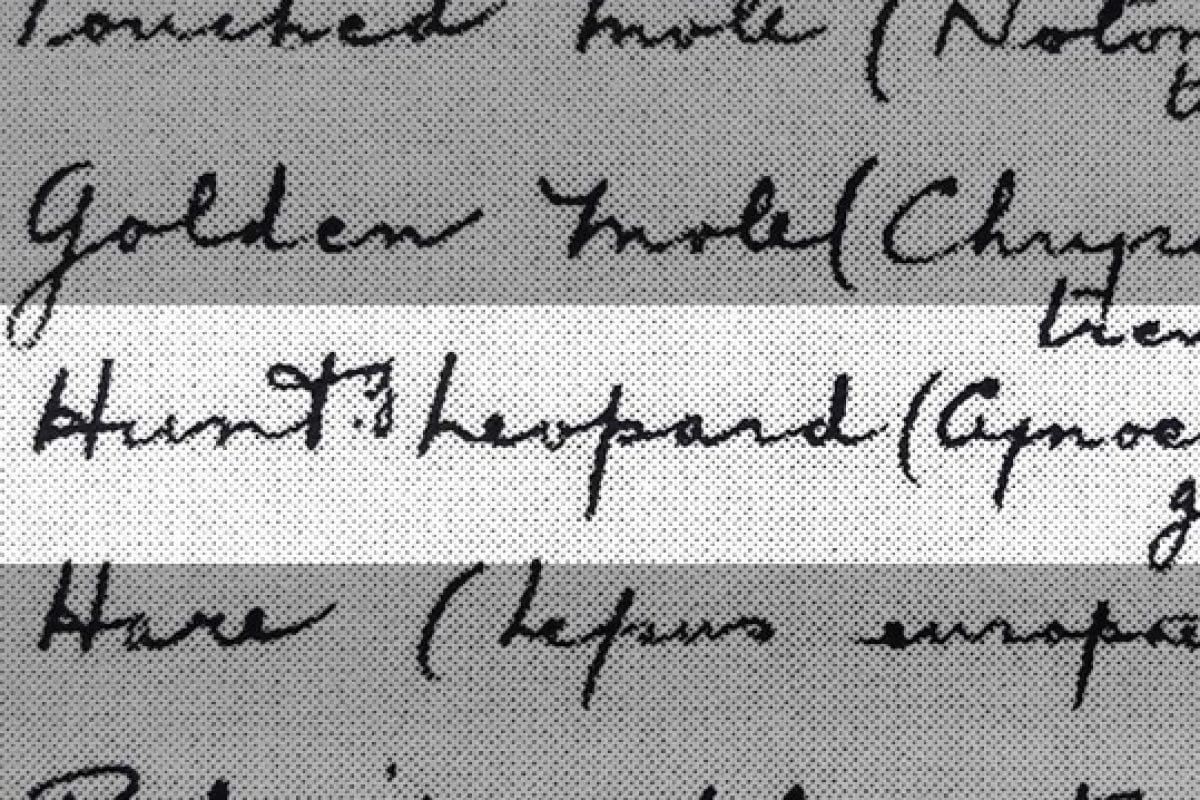 Pouched mole (Noto
Golden mole (Chrys
Hunt.g Leopard (Cynoe
Hare (Lepus europae